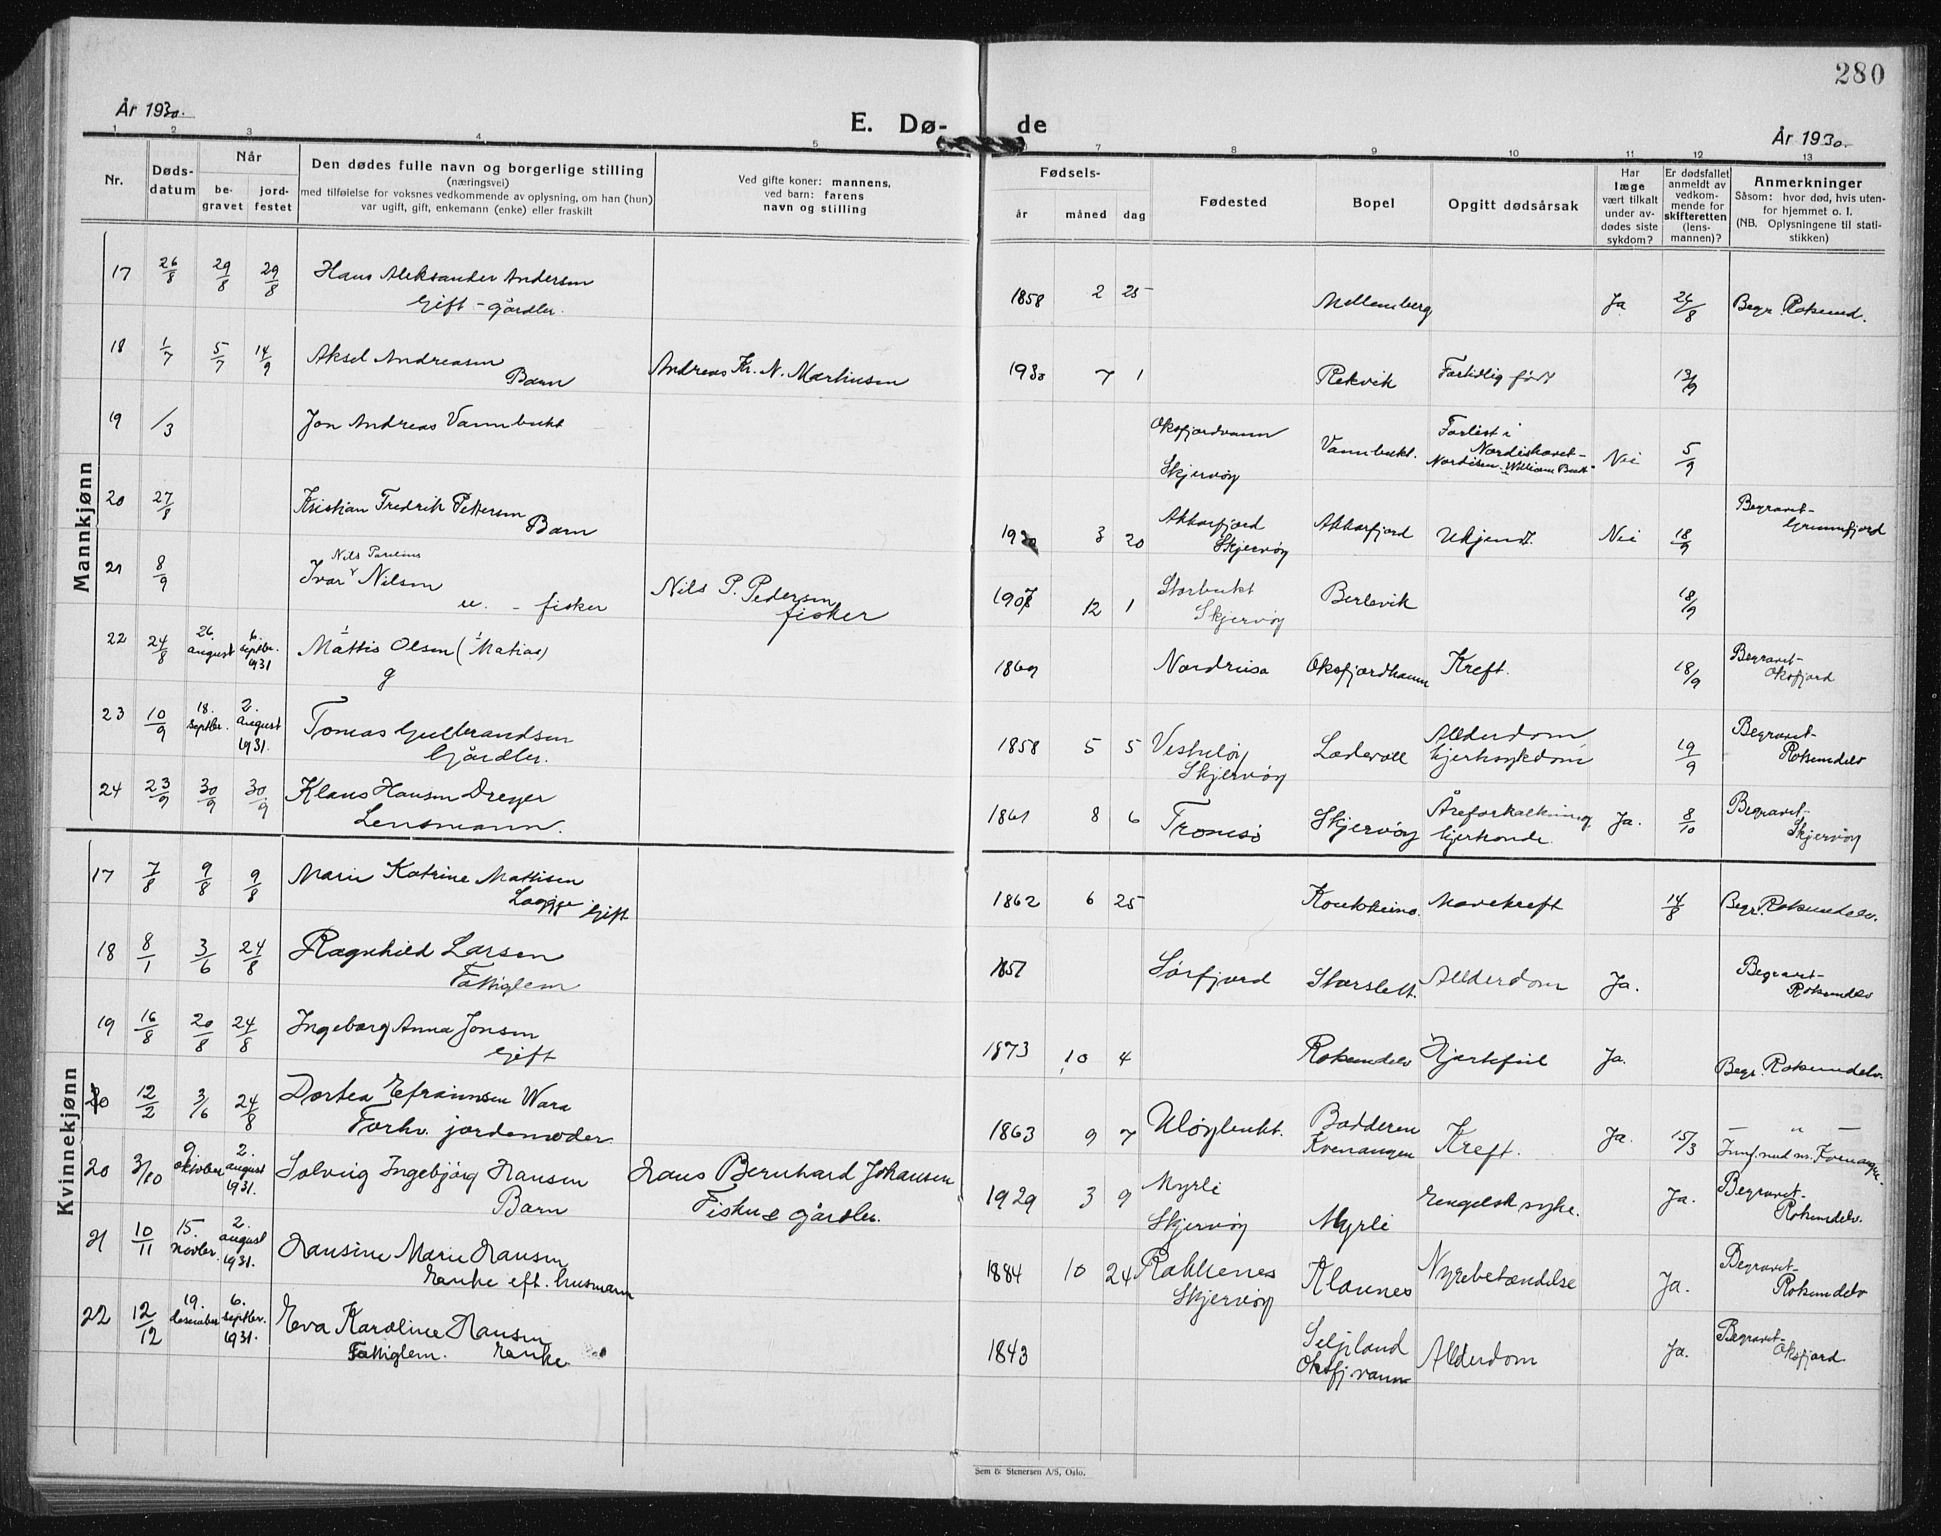 280
År 1930.
E. Dø- de
År 1930.
1 2 3 4 5 7 8 9 10 11 12 13
Nr.
Døds-
datum
Når
be-
gravet
jord-
festet
Den dødes fulle navn og borgerlige stilling
(næringsvei)
med tilføielse for voksnes vedkommende av oplysning, om han (hun)
var ugift, gift, enkemann (enke) eller fraskilt
Ved gifte koner: mannens,
ved barn: farens
navn og stilling
Fødsels-
år måned dag
Fødested
Bopel
Opgitt dødsårsak
Har
læge
vært tilkalt
under av-
dødes siste
sykdom?
Er dødsfallet
anmeldt av
vedkom-
mende for
skifteretten
(lens-
mannen)?
Anmerkninger
Såsom: hvor død, hvis uten-
for hjemmet o. l.
(NB. Oplysningene til stati-
stikken)
Mannkjønn
17 26/8 29/8 29/8 Hans Aleksander Andersen
Gift - gårdbr.
1858 2 25 Mellemberg Ja 26/8 Begr. Roksund.
18 1/7 5/7 14/9 Aksel Andreasen
Barn
Andreas Kr. N. Marthinsen 1930 7 1 Rekvik Fortidlig født 13/9
19 /3 Jon Andreas Vannbukt
Oksfjordvann
Skjervøy
Vannbukt.
Forlist i
Nordishavet-
Nei 5/9
20 27/8 Kristian Fredrik Pettersen
Barn
1930 3 20 Akkarfjord
Skjervøy
Akkarfjord Ukjendt. Nei 18/9
Begravet-
Grunnfjord
21 8/9 Nils Parelius
Ivar Nilsen
u. - fisker
Nils P. Pedersen
fisker
1907 12 1 Storbukt
Skjervøy
Berlevik 18/9
22 24/8 26. august 6. septbr. 1931 Mattis Olsen (Matias)
g
1869 Nordreisa Oksfjordhavn Kreft. 18/9
Begravet-
Oksfjord
23 10/9 18. septbr. 2. august 1931. Tomas Gulbrandsen
Gårdbr.
1858 5 5
Skjervøy
Alderdom
hjertesykdom
19/9
Begravet-
Roksundelv
24 23/9 30/9 30/9 Klaus Hansen Dreyer
Lensmann.
1861 8 6 Tromsø Skjervøy Åreforkalkning
hjerteonde.
Ja. 8/10
Begravet-
Skjervøy
Kvinnekjønn
17 7/8 9/8 9/8 Marie Katrine Mattisen
Gift
1862 6 25 Koutokeino. Mavekreft 14/8 Begr. Roksundelv.
18 8/1 3/6 24/8 Ragnhild Larsen
Fattiglem
1857 Sørfjord Storslett. Alderdom Ja.
Begravet-
Roksundelv
19 16/8 20/8 24/8 Ingeborg Anna Jonsen
Gift
1873 10 4 Roksundelv Hjertefeil Ja.
Begr. Roksundelv.
20 12/2 3/6 24/8 Dortea Efraimsen Wara
Forhv. jordemoder.
1863 9 7 Uløybukt. Badderen
Kvenangen
Kreft. Ja. 15/3
— „ —
20 3/10 9. oktober 2. august 1931. Solveig Ingebjørg Hansen
Barn
Hans Bernhard Johansen
Fisker & gårdbr.
1929 3 9 Myrli
Skjervøy
Myrli Engelsk syke. Ja.
Begravet-
Roksundelv.
21 10/11 15. novbr. 2. august 1931. Hansine Marie Hansen
Enke eft. husmann
1884 10 24 Rakkenes
Skjervøy
Klaunes Nyrebetændelse Ja.
Begravet-
Roksundelv
22 12/12 19. desember 6. septbr. 1931. Eva Karoline Hansen
Fattiglem. Enke.
1843 Seljland
Oksfj.vann
Alderdom Ja.
Begravet-
Oksfjord
Sem & Stenersen A/S, Oslo.